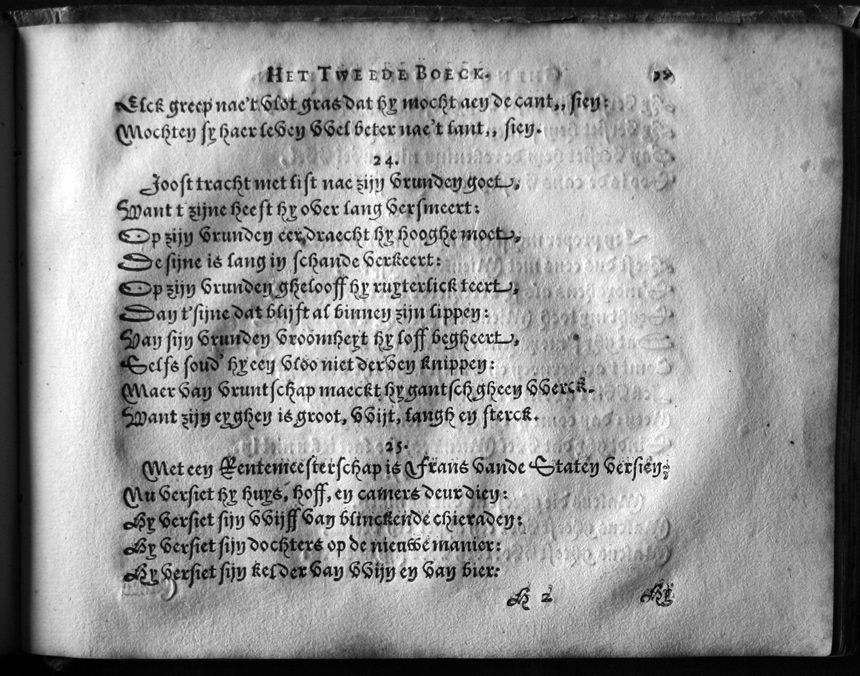 HET TWEEDE BOECK.
Elck greep nae't vlot gras dat hy mocht aen de cant,, sien:
Mochten sy haer leven vvel beter nae't lant,, sien.
24.
Joost tracht met list nae zijn vrunden goet,
Want t'zijne heeft hy over lang versmeert:
Op zijn vrunden eer draecht hy hooghe moet,
De sijne is lang in schande verkeert:
Op zijn vrunden ghelooff hy ruyterlick teert,
Dan t'sijne dat blijft al binnen zijn lippen:
Van sijn vrunden vroomheyt hy loff begheert,
Selfs soud' hy een vloo niet derven knippen:
Maer van vruntschap maeckt hy gantsch gheen vverck.
Want zijn eyghen is groot, vvijt, langh en sterck.
25.
Met een Rentemeesterschap is Frans vande Staten versien;
Nu versiet hy huys, hoff, en camers deur dien:
Hy versiet sijn vvijff van blinckende chieraden:
Hy versiet sijn dochters op de nieuwe manier:
Hy versiet sijn kelder van vvijn en van bier:
H 2 Hy